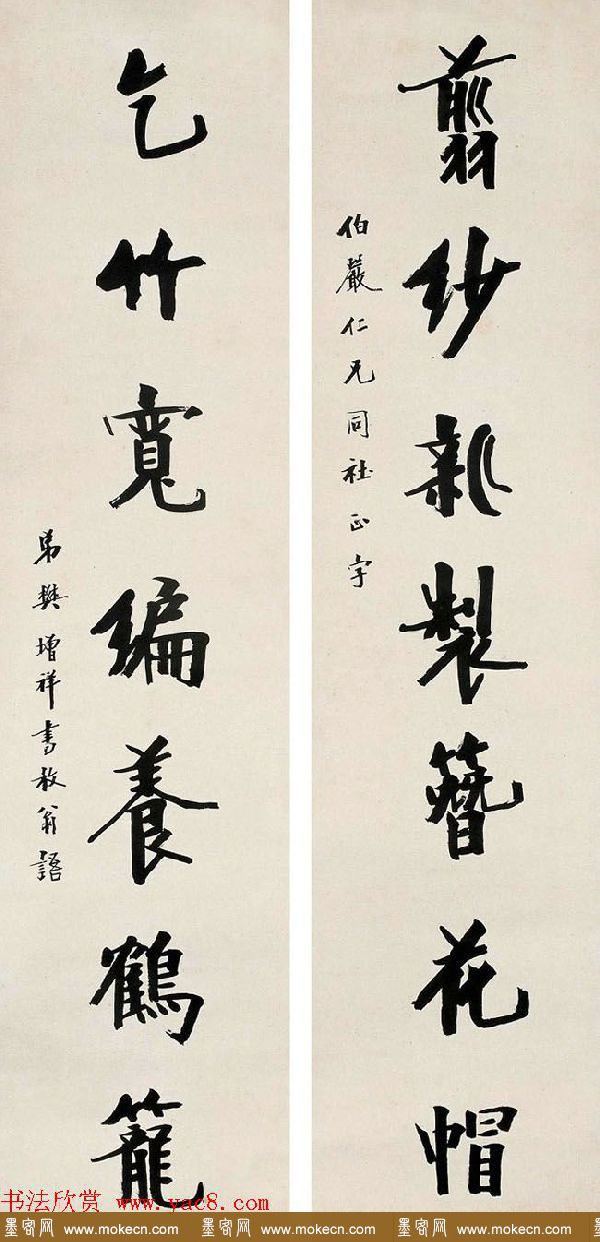 翦紗新製簪花帽
伯嚴仁兄同社正字
乞竹寬編養鶴籠
弟樊增祥書放翁語
书法欣赏 www.yac8.com
墨客网 www.mokecn.com 墨客网 www.mokecn.com 墨客网 www.mokecn.com